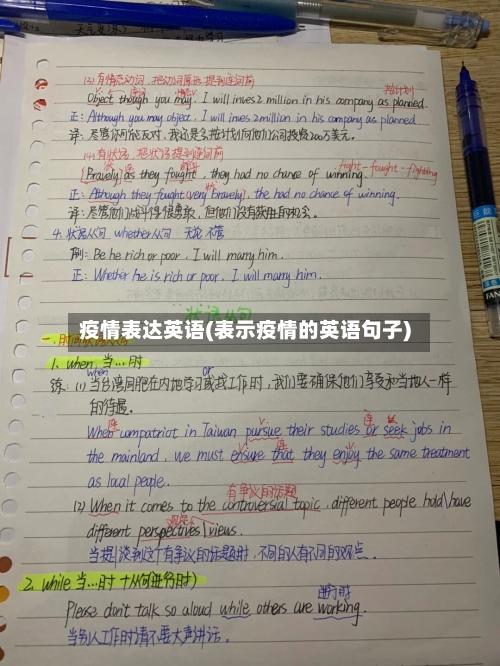 (3) 有情态动词，把动词原形提到连词前
按计划
Object though you may, I will inves 2 million in his company as planned.
正: Although you may object, I will inves 2 million in his company as planned.
译: 尽管你可能反对，我还是会按计划向他们公司投资200万美元。
(4) 有状语，把状语提到连词前
fight-fought-fighting
(Bravely) as they fought, they had no chance of winning.
正: Although they fought (very bravely), the had no chance of winning.
译: 尽管他们战斗得很勇敢，但他们没有获胜的机会。
4. 状语从句 whether从句 无论 不管
例: Be he rich or poor, I will marry him.
正: Whether he is rich or poor, I will marry him.
状语从句
疫情表达英语(表示疫情的英语句子)
一.时间
1. when 当…时
when or
练: (1) 当台湾同胞在内地学习或找工作时，我们要确保他们享受和当地人一样
的待遇。
When compatriot in Taiwan pursue their studies or seek jobs in
the mainland, we must ensure that they enjoy the same treatment
as local people.
有争议的话题
(2) When it comes to the controversial topic, different people hold\have
different perspectives\views.
观点
当提\谈到这个有争议的话题时，不同的人有不同的观点.
2. while 当…时 + 从句(进行时)
进行时
Please don't talk so aloud while others are working.
当别人工作时请不要大声讲话。